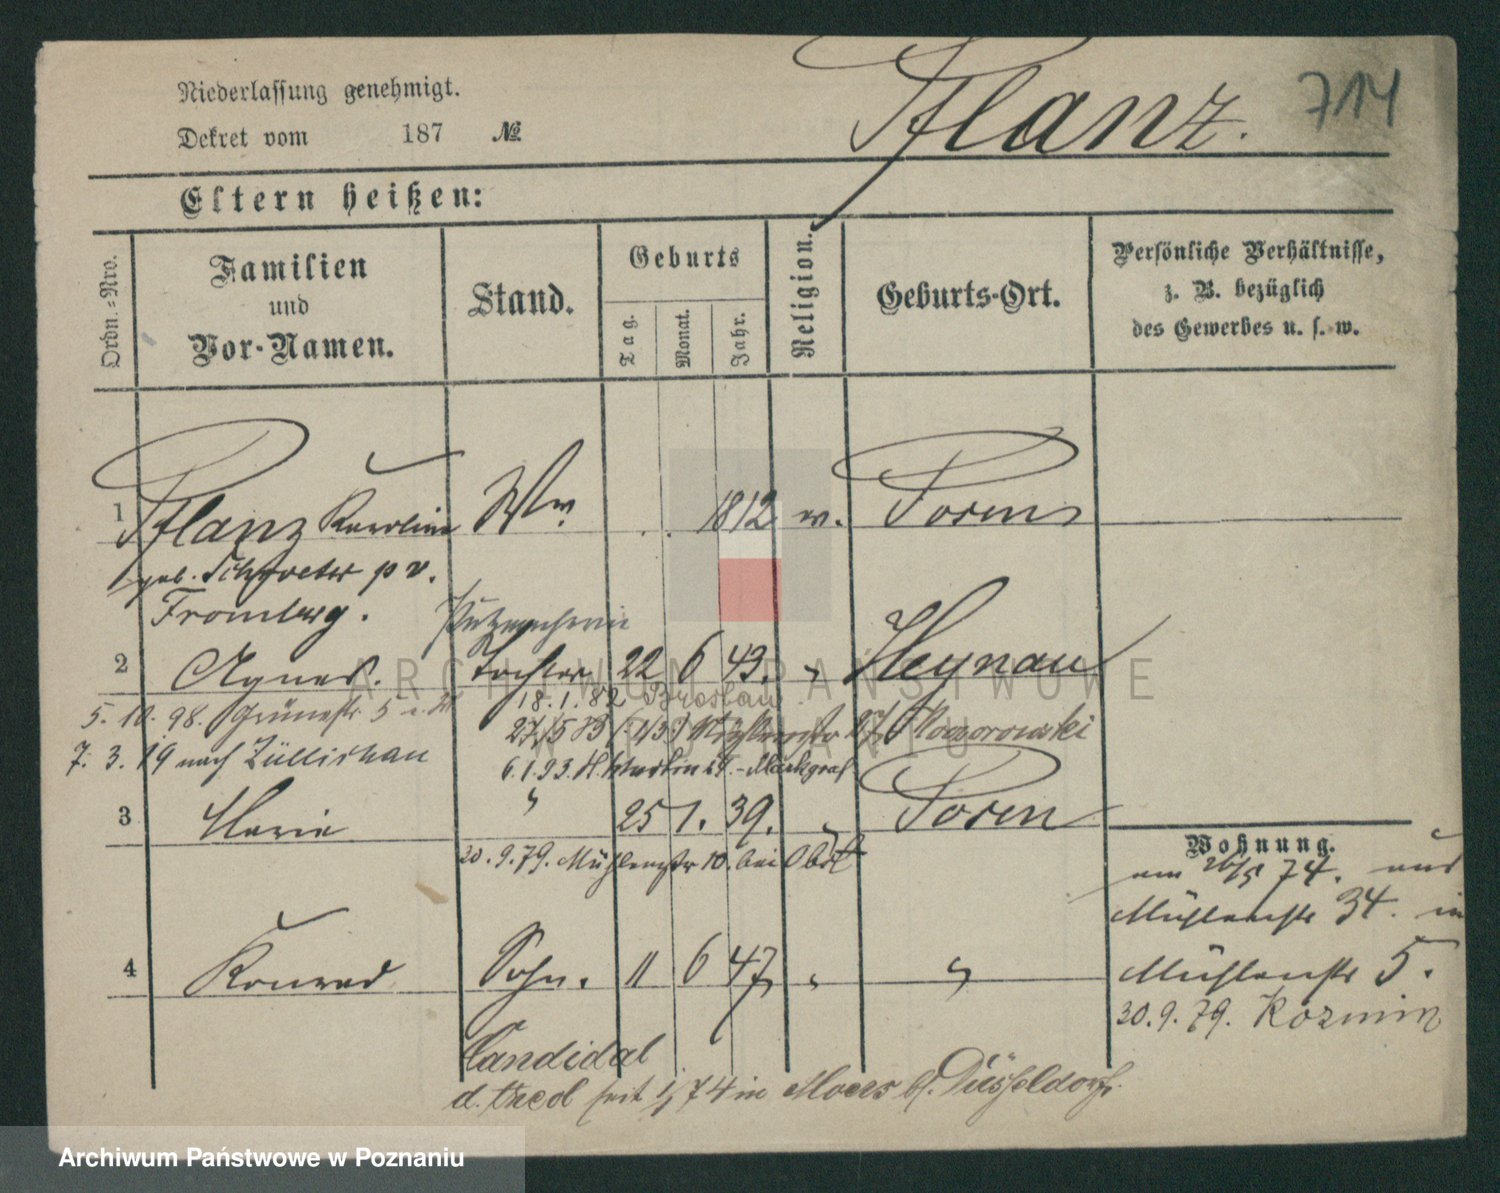 Niederlassung genehmigt.
Dekret vom 187 №
Pflanz. 714
Eltern heißen:
Ordn.-Nro.
Familien
und
Vor-Namen.
Stand.
Geburts
Tag.
Monat.
Jahr.
Religion.
Geburts-Ort.
Persönliche Verhältnisse,
z. B. bezüglich
des Gewerbes u. s. w.
1 Pflanz Karoline Ww. 1812 ev. Posen
geb. Schroeter p v.
Fromberg.
Putzmacherin
2 Agnes. Tochter 22 6 43. " Heynau
18.1.82 Breslau
5.10.98. Grünestr. 5
27/5 Komorowski
7.3.19 nach Züllichau
6.1.93. St. Martin 25. Markgraf
3 Marie " 25 1. 39. " Posen
30.9.79. Mühlenstr 10. bei Obst
Wohnung.
am 26/5 74. aus
Mühlenstr 34. in
Mühlenstr 5.
30.9.79. Kozmin
4 Konrad Sohn. 11 6 47 " "
Candidat
d. theol seit 1/ 74 in Moers b/. Düsseldorf.
ARCHIWUM PAŃSTWOWE
W POZNANIU
Archiwum Państwowe w Poznaniu